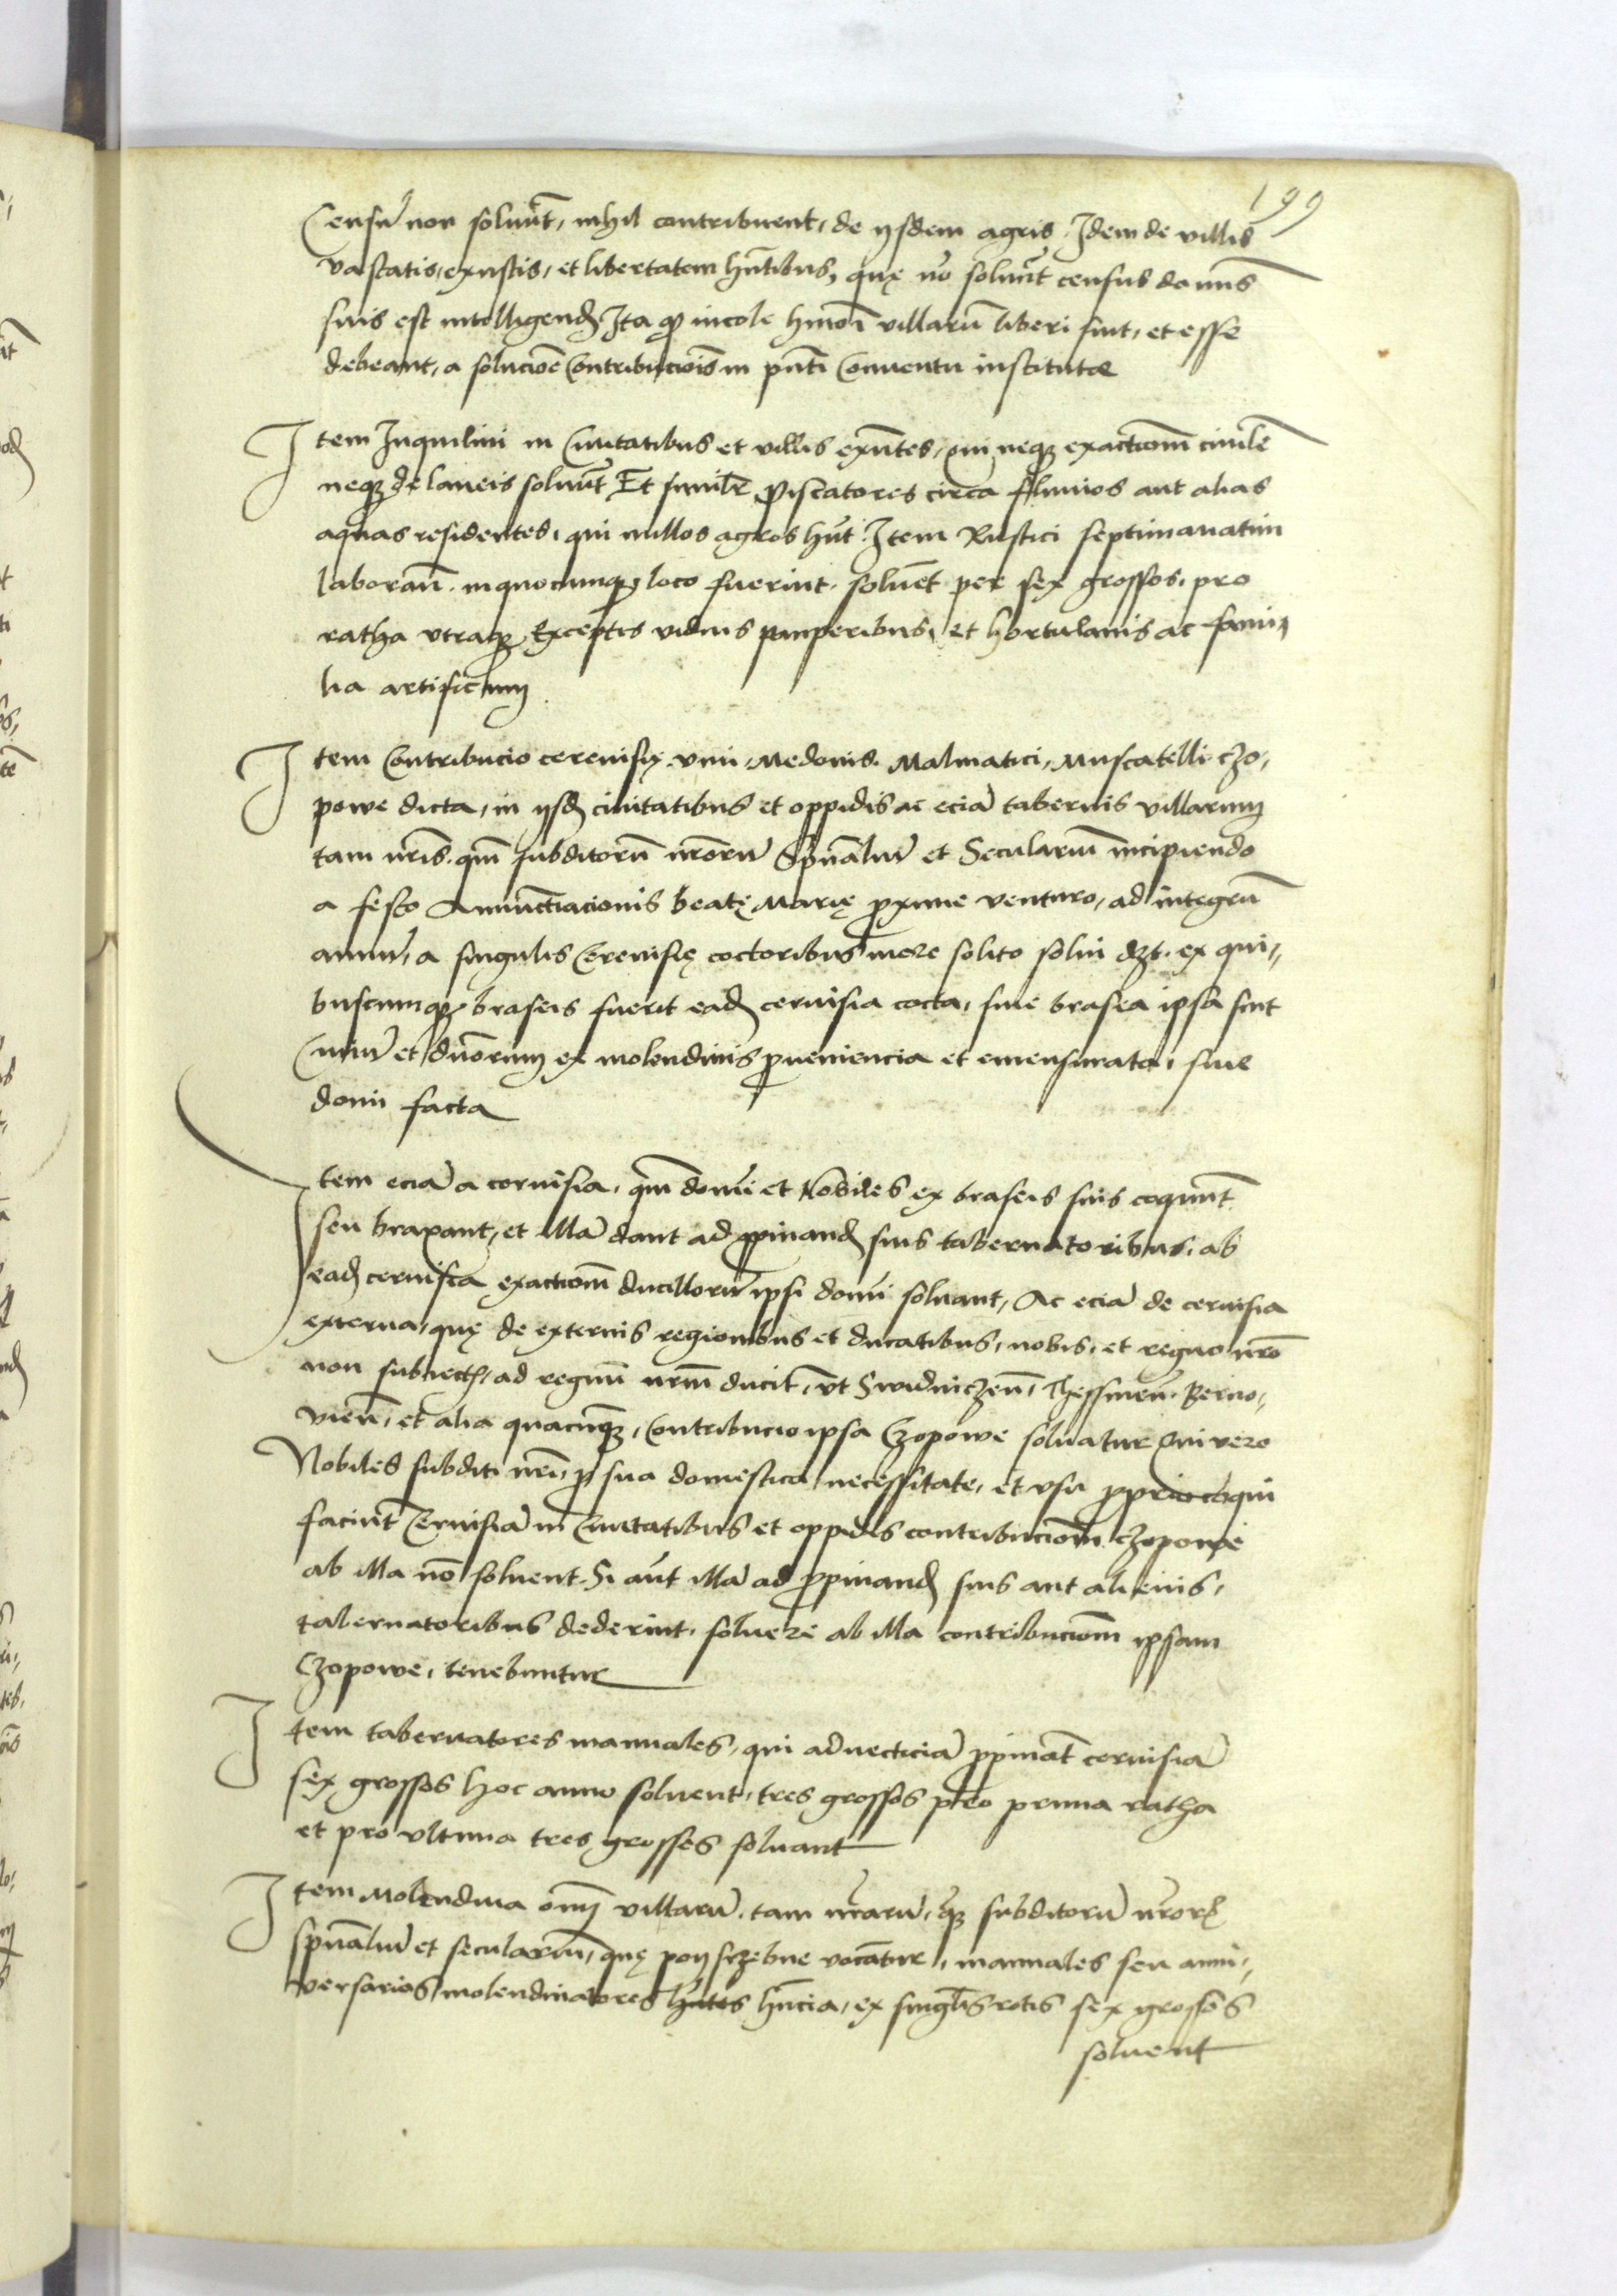 199
Censũ non soluũt, nihil contribuent, de ijsdem agris. Idem de villis
vastatis, exustis, et libertatem hñtibus, quę nõ soluũt census dominis
suis est intelligend Ita ꝙ incole hmõi villarũ liberi sint, et esse
debeant, a solucioẽ Contribucioñis in pñti Conuentu institutæ
Item Inquilini in Ciuitatibus et villis exñtes, qui neqꝫ exactionem̃ ciuilẽ
neqꝫ de laneis soluũt Et similr̃ Piscatores circa fluuios aut alias
aquas residentes, qui nullos agros hñt. Item Rustici septimanatim
laborañ. in quocunqꝫ loco fuerint. soluẽt per sex grossos. pro
ratha vtraqꝫ Exceptis viduis pauperibus, et hortulanis ac fami-
lia artificum
Item Contribucio cereuisię vini, Medonis. Malmatici, Muscatelli czo,
powe dicta, in ijsd ciuitatibus et oppidis ac eciã tabernis villarum
tam nr̃is. qm̃ subditorũ nr̃orũ Spũaliũ et Seculariũ incipiendo
a festo Annunctiacionis beatę Marię proxime venturo, ad integrũ
annũ, a singulis Cereuisię coctoribus more solito solui dʒt. ex qui-
buscumqꝫ braseis fuerit ead ceruisia cocta, siue brasea ipsa sint
Ciuiũ et dnõrum ex molendinis proueniencia et emensurata, siue
domi facta
Item eciã a ceruisia, qm̃ domĩ et Nobiles ex braseis suis coquũt
seu braxant, et illã dant ad propinand suis tabernatoribus. ab
ead ceruisia exactionem̃ ducillorũ ipsi domĩ soluant, Ac eciã de ceruisia
externa, quę de externis regionibus et ducatibus, nobis, et regno nr̃o
non subiectꝭ, ad regnũ nr̃m ducit̃, vt Swidniczeñ, Thessineñ. Berno,
vieñ, et alia quacũqꝫ, Contribucio ipsa Czopowe soluatur Qui vero
Nobiles subditi nr̃i, p sua domestica necessitate, et vsu proprio coqui
faciũt Ceruisiã in Ciuitatibus et oppidis contribucionem̃ czopowe
ab illa nõ soluent. Si aũt illã ad propinand suis aut alienis,
tabernatoribus dederint, soluere ab illa contribucionem̃ ipsam
Czopowe, tenebuntur
Item tabernatores manuales, qui aduecticiã propinãt ceruisiã
sex grossos hoc anno soluent, tres grossos pro prima ratha
et pro vltima tres grossos soluant
Item Molendina om̃ villarũ. tam nr̃arũ, qꝫ subditorũ nr̃orꝝ
spũaliũ et seculariũ, quę poyszebne vocãtur, manuales seu anni-
versarios molendinatores hñtes hñcia, ex singl̃is rotis sex grossos
soluent